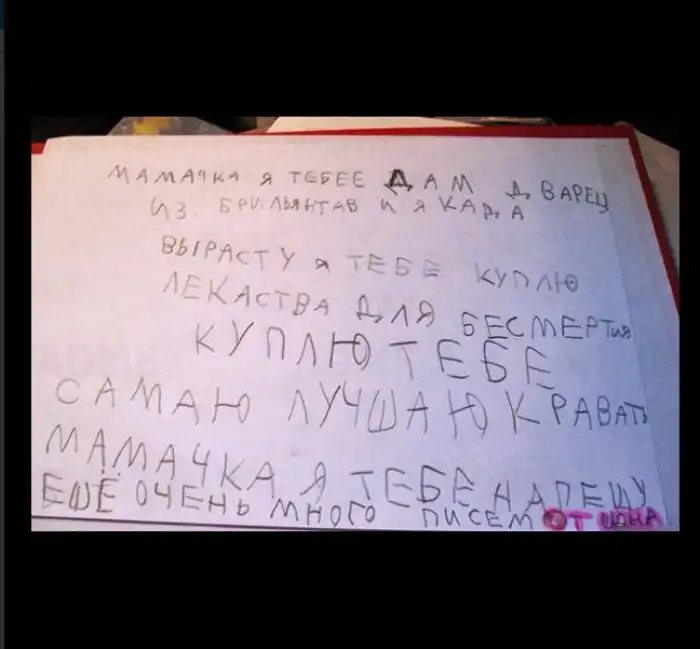 МАМАЧКА Я ТЕБЕЕ ДАМ ДВАРЕЦ
ИЗ. БРИЛЬЯНТАВ И Я КАДА
ВЫРАСТУ Я ТЕБЕ КУПЛЮ
ЛЕКАСТВА ДЛЯ БЕСМЕРТИЯ
КУПЛЮ ТЕБЕ
САМАЮ ЛУЧШАЮ КРАВАТЬ
МАМАЧКА Я ТЕБЕ НАПЕШУ
ЕШЁ ОЧЕНЬ МНОГО ПИСЕМ ОТ